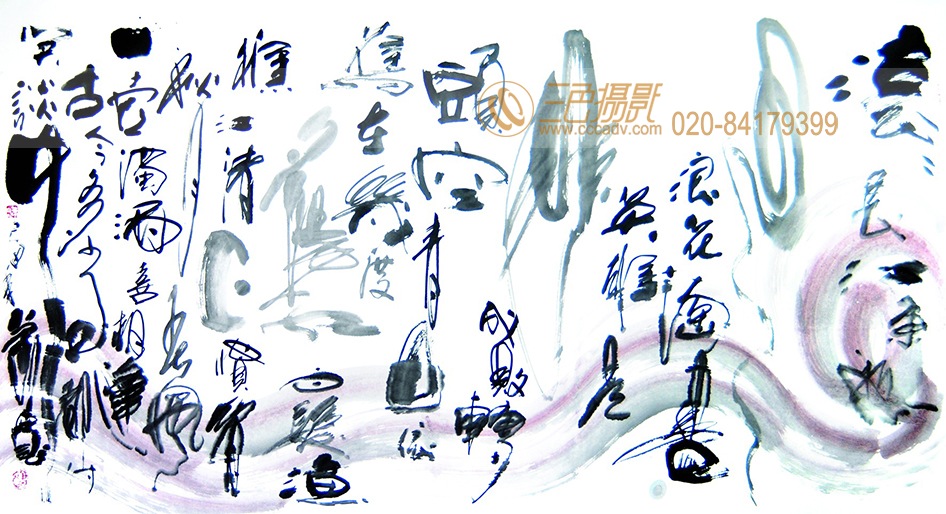 滚滚长江东逝水
浪花淘尽
英雄是
非
成败转
头空青山依旧
在几度
夕阳红
白发渔
樵江渚上惯看
秋月春风
一壶浊酒喜相逢
古今多少事都付
笑谈中
三色攝影
www.cccadv.com
020-84179399